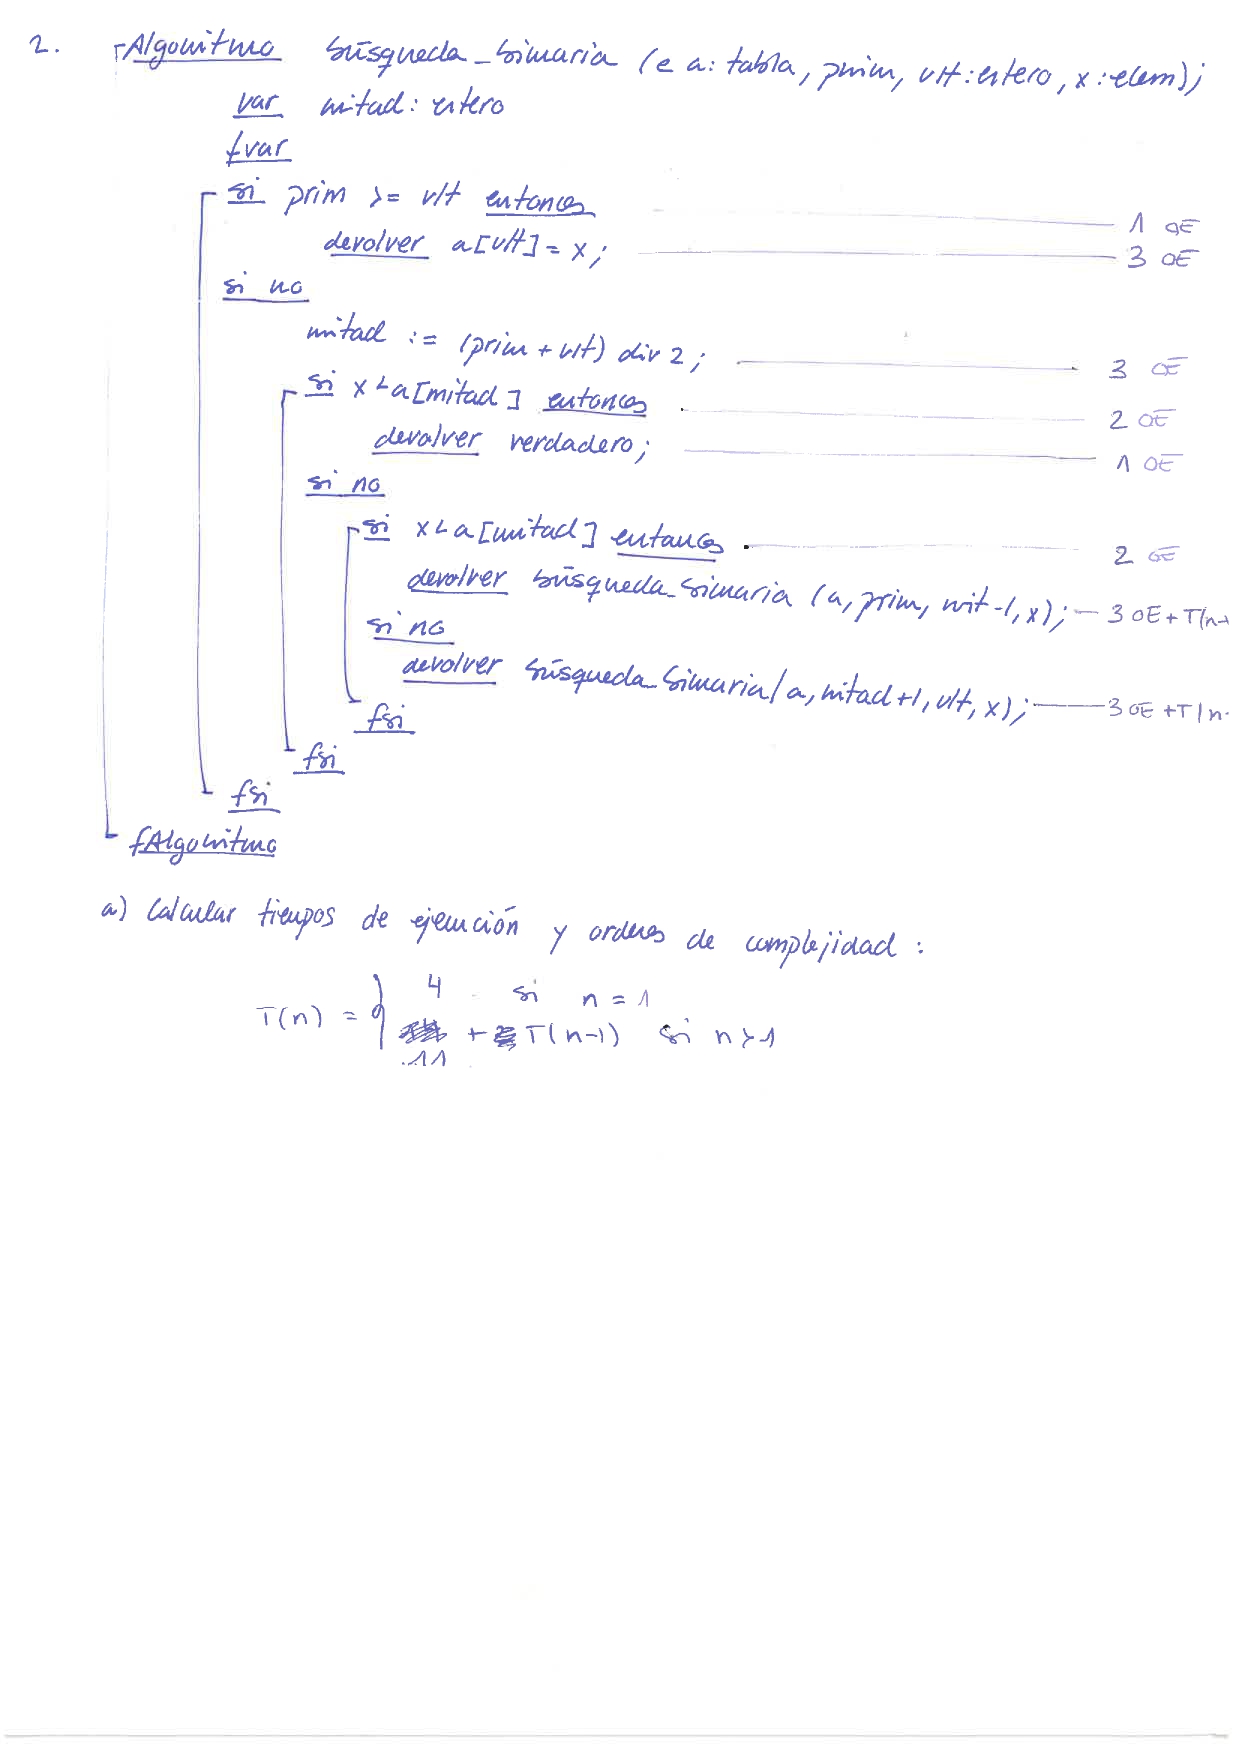 2. Algoritmo búsqueda_binaria (e a: tabla, prim, ult: entero, x: elem);
var mitad: entero
fvar
si prim >= ult entonces 1 OE
devolver a[ult] = x; 3 OE
si no
mitad := (prim + ult) div 2; 3 OE
si x < a[mitad] entonces 2 OE
devolver verdadero; 1 OE
si no
si x < a[mitad] entonces 2 OE
devolver búsqueda_binaria (a, prim, mit-1, x); 3 OE + T(n-1
si no
devolver búsqueda_binaria (a, mitad+1, ult, x); 3 OE + T(n-
fsi
fsi
fsi
fAlgoritmo
a) Calcular tiempos de ejecución y ordenes de complejidad :
T(n) = { 4 si n = 1
11 + T(n-1) si n > 1